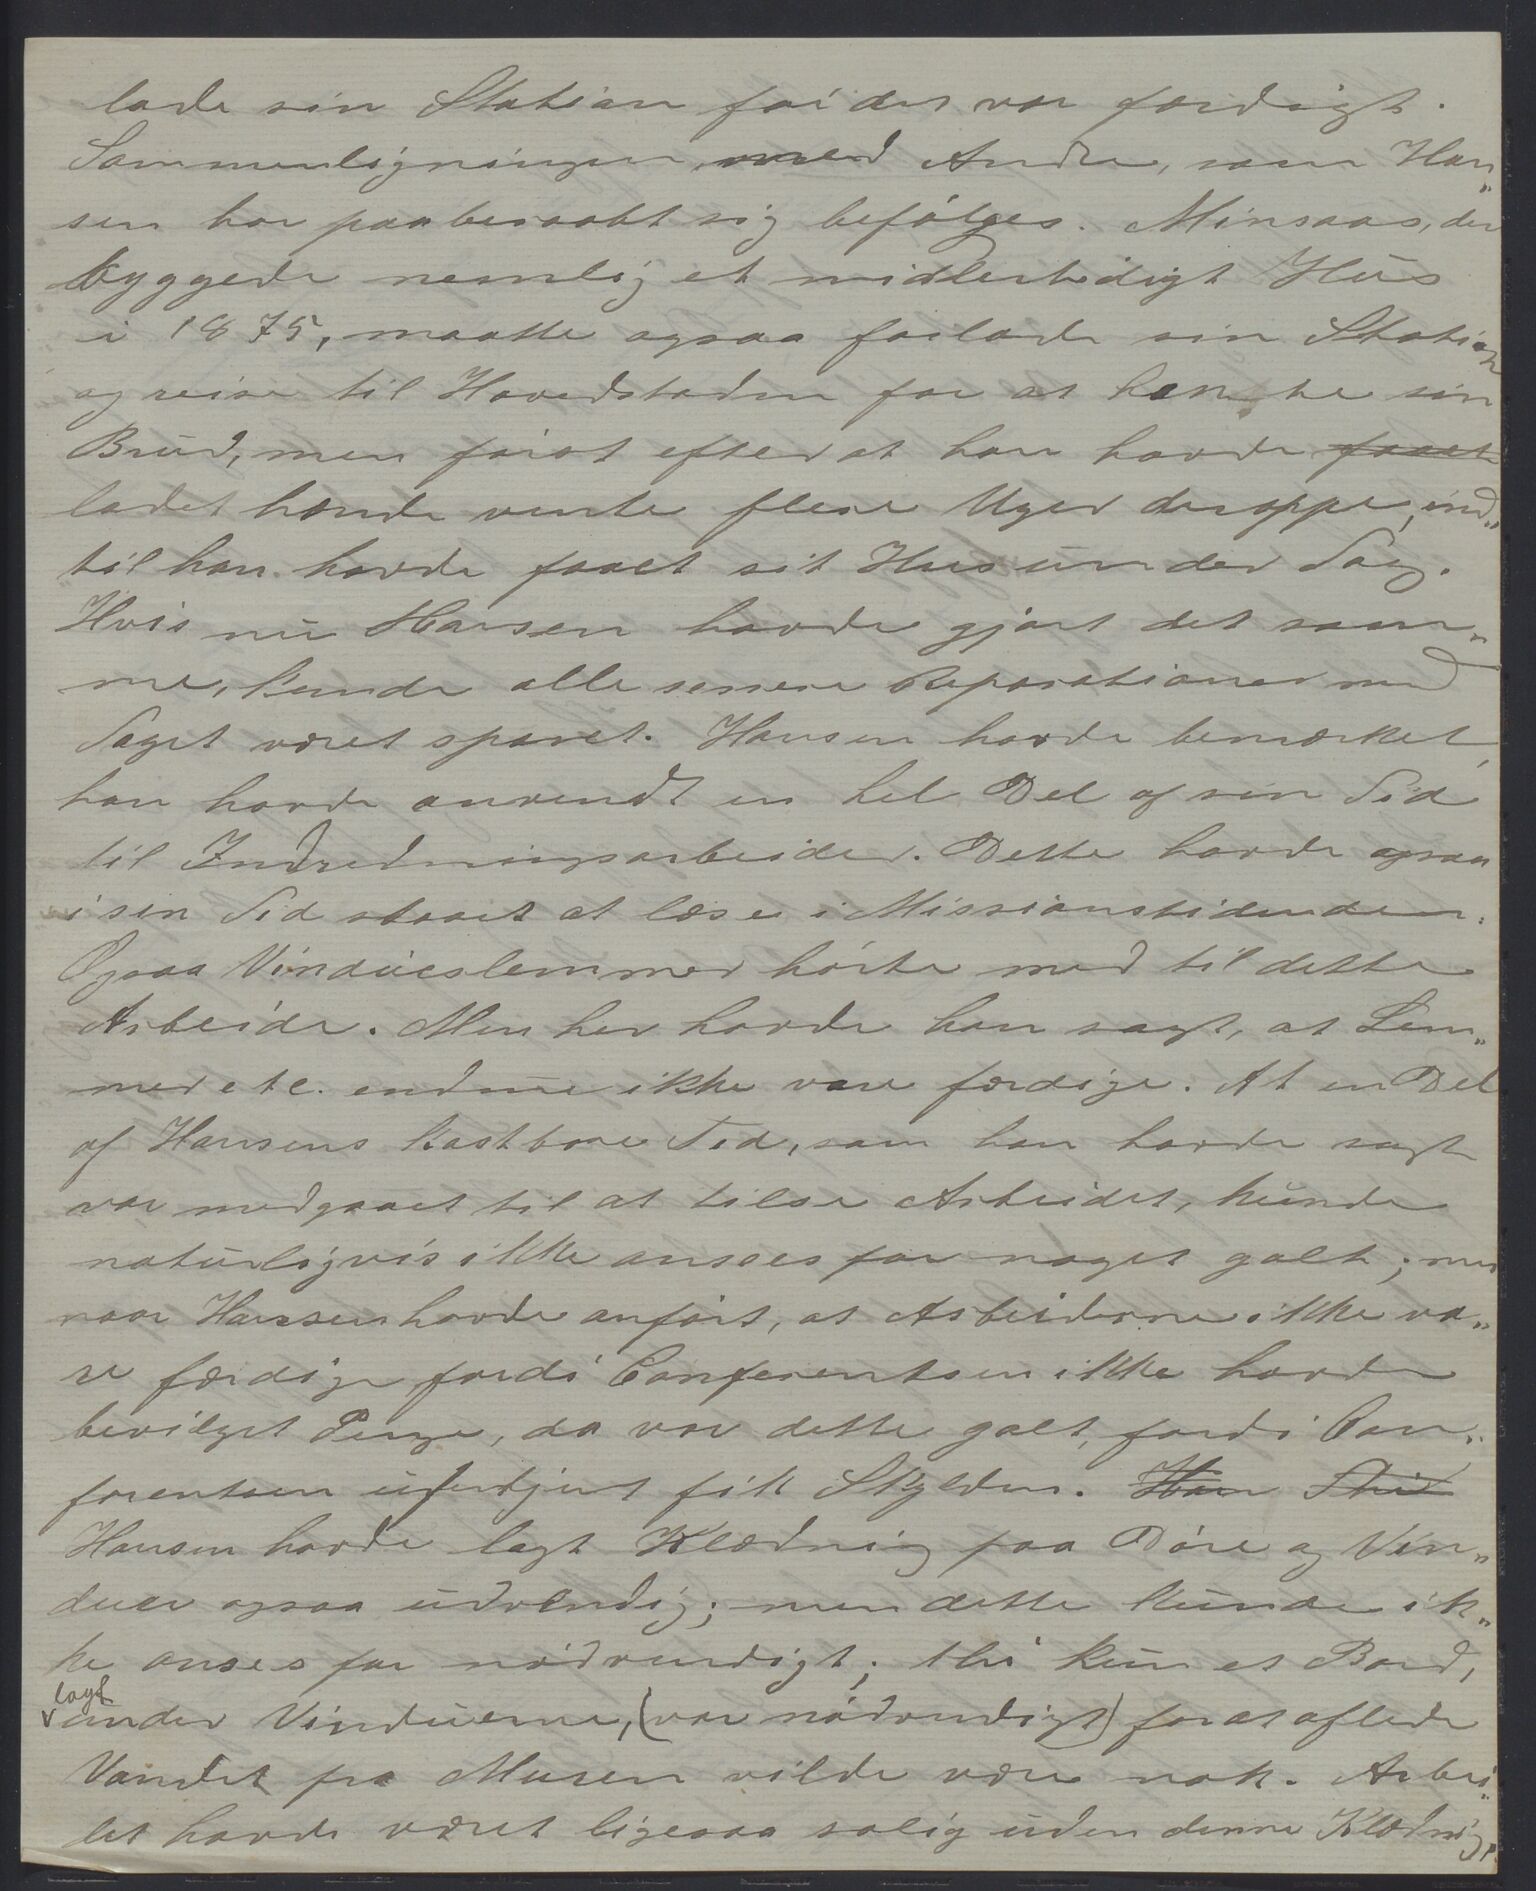 lade sin Station før det var færdigt.
Sammenligningen med Andre, som Han„
sen har paaberaabt sig befølges. Minsaas, der
byggede nemlig et midlertidigt Hus
i 1875, maatte ogsaa forlade sin Station
og reise til Hovedstaden for at hente sin
Brud, men først efter at han havde faaet
ladet hende vente flere Uger deroppe, ind„
til han havde faaet sit Hus under Tag.
Hvis nu Hansen havde gjort det sam„
me, kunde alle senere Reparationer med
Taget været sparet. Hansen havde bemærket,
han havde anvendt en hel Del af sin Tid
til Indredningsarbeider. Dette havde ogsaa
i sin Tid staaet at læse i Missionstidenden.
Ogsaa Vindueslemmer hørte med til dette
Arbeide. Men her havde han sagt, at Lem„
mer etc. endnu ikke vare færdige. At en Del
af Hansens kostbare Tid, som han havde sagt
var medgaaet til at tilse Arbeidet, kunde
naturligvis ikke ansees for noget galt; men
naar Hansen havde anført, at Arbeiderne ikke va„
re færdige fordi Conferentsen ikke havde
bevilget Penge, da var dette galt, fordi Con„
ferentsen ufortjent fik Skylden. Han Thi
Hansen havde lagt Klædning paa Døre og Vin„
duer ogsaa udvendig; men dette kunde ik„
ke anses for nødvendigt; thi kun et Bord,
lagt
under Vinduerne, (var nødvendigt) for at aflede
Vandet fra Muren vilde være nok. Arbei„
det havde været ligesaa solig uden denne Klædning.